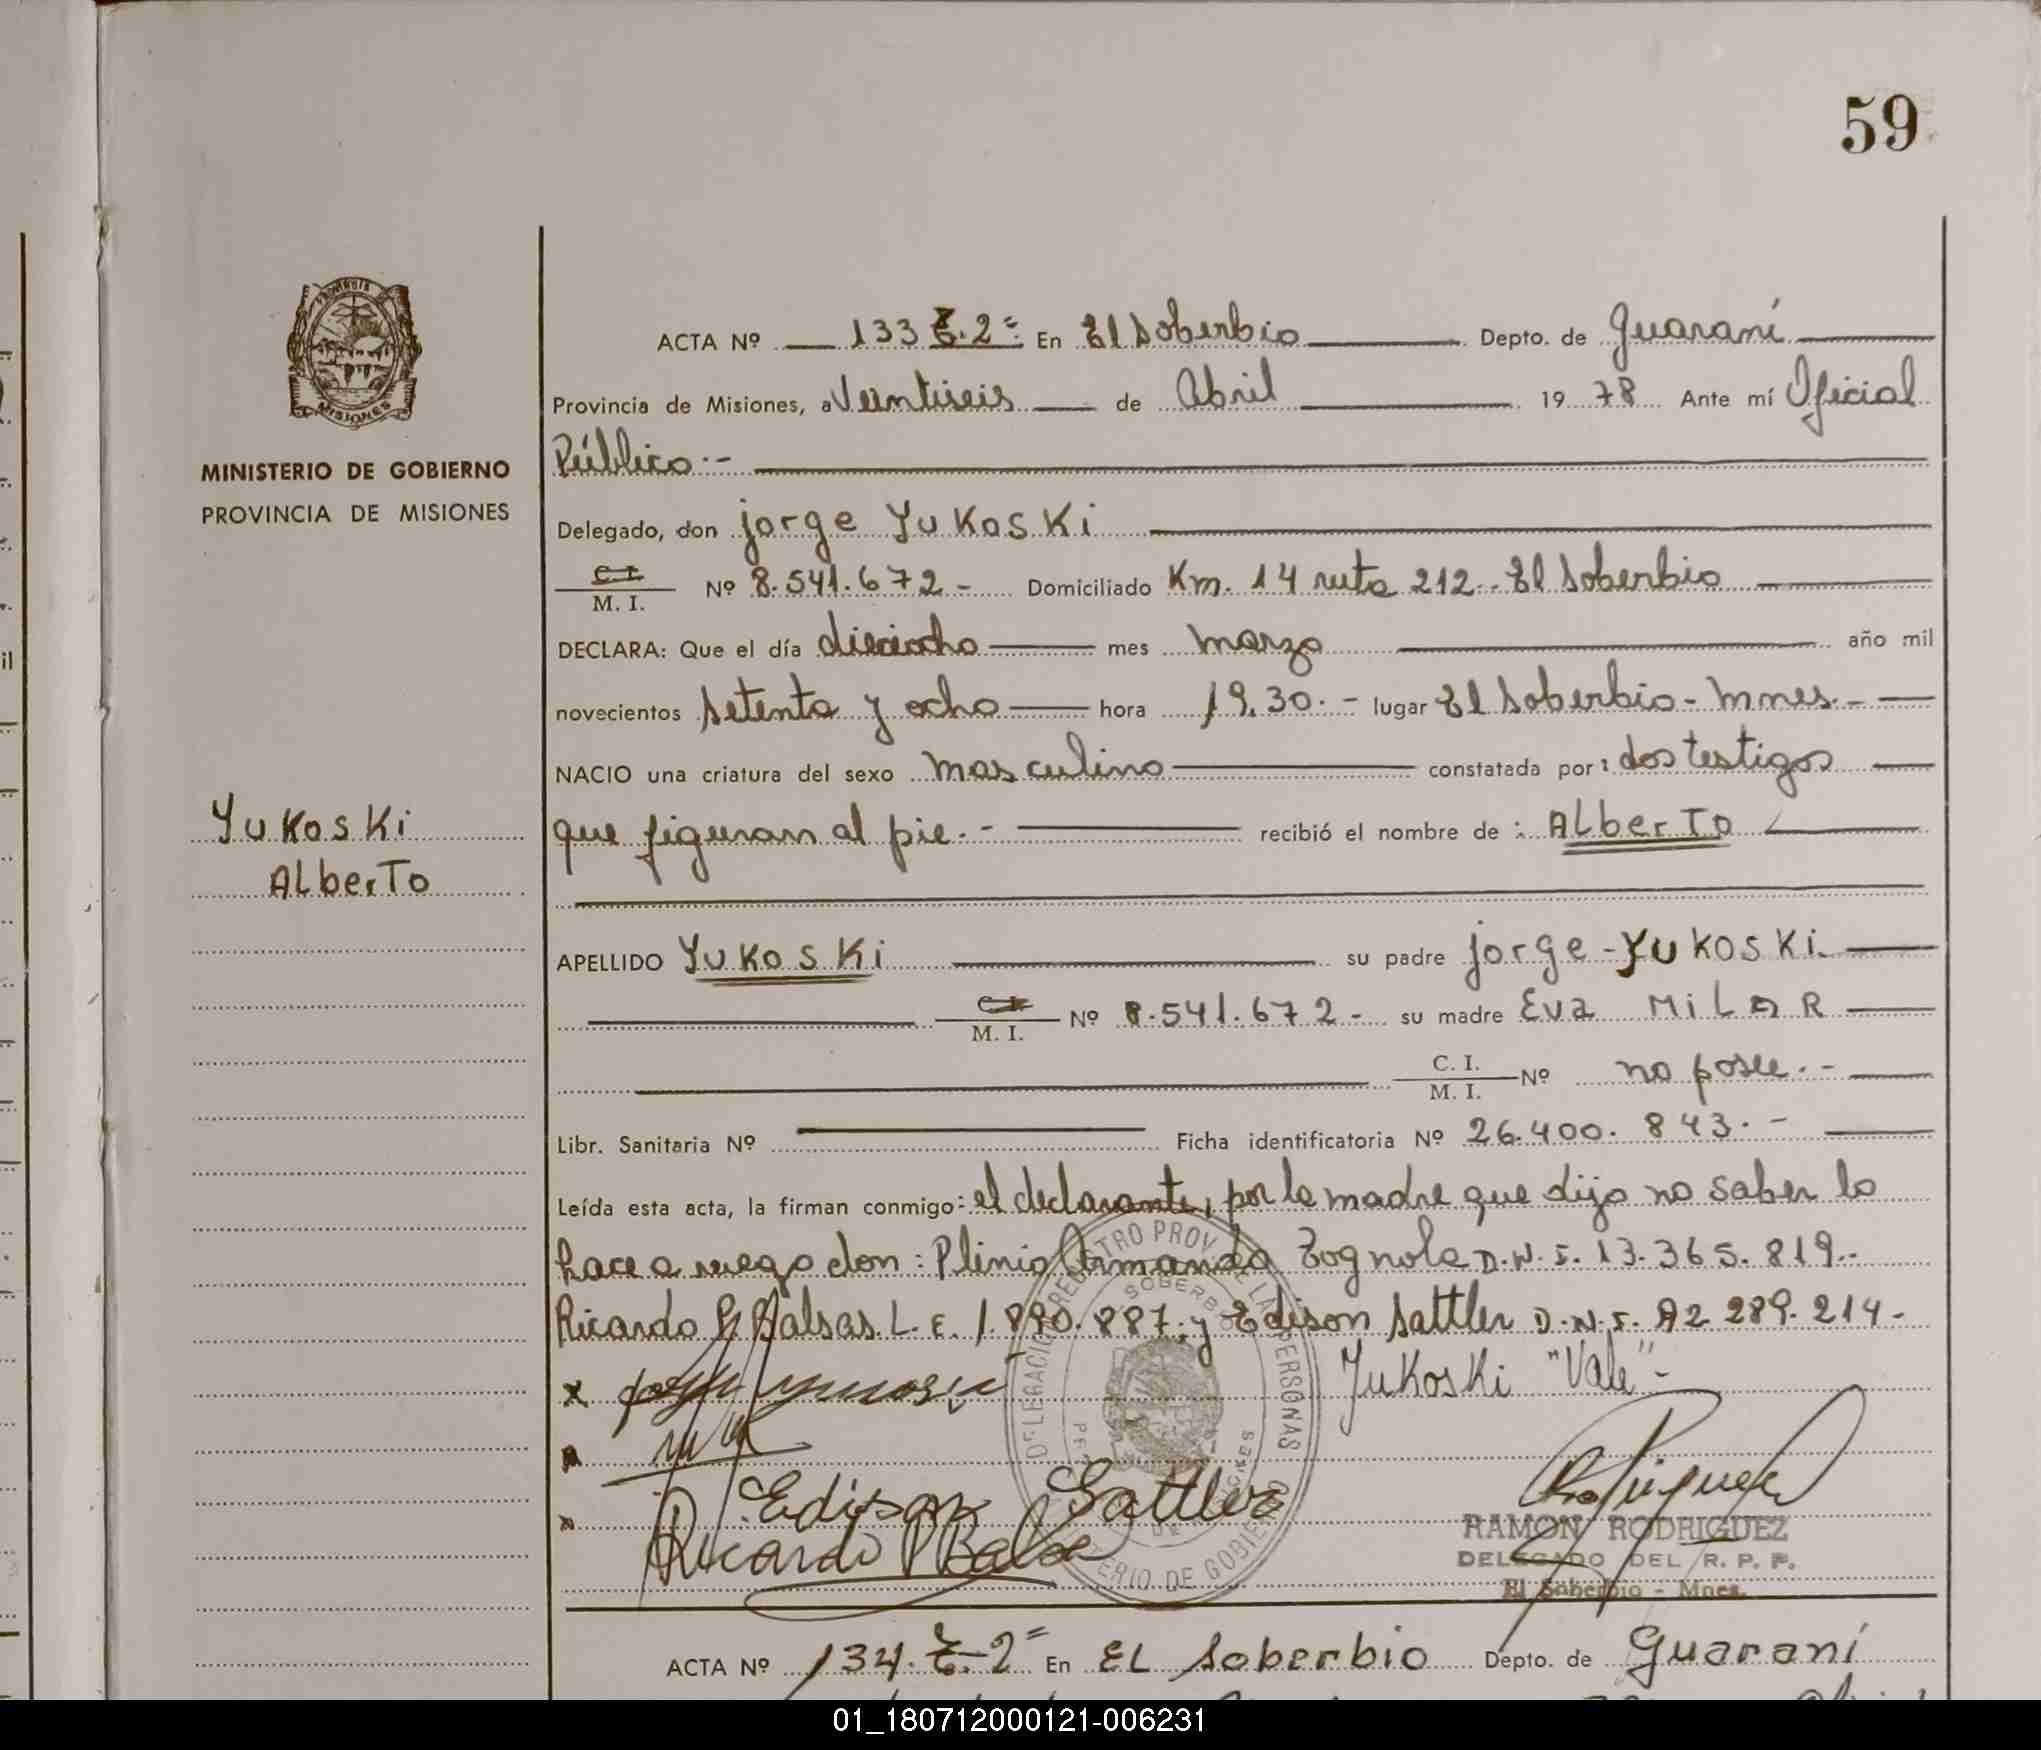 59
ACTA Nº 133 T. 2º En El Soberbio Depto. de Guaraní
Provincia de Misiones, a Veintiseis de Abril 1978 Ante mí Oficial
Público.-
MINISTERIO DE GOBIERNO
PROVINCIA DE MISIONES
Delegado, don jorge YuKosKi
C.I. M. I. Nº 8.541.672- Domiciliado Km. 14 ruta 212.-El Soberbio
DECLARA: Que el día dieciocho mes marzo año mil
novecientos setenta y ocho hora 19,30.- lugar El Soberbio-Mnes.-
NACIO una criatura del sexo masculino constatada por: dos testigos
YuKosKi
ALberTo
que figuran al pie.- recibió el nombre de: ALberTo
APELLIDO YuKosKi su padre jorge-YuKosKi.
M. I. Nº 8.541.672- su madre Eva MiLaR
C. I. M. I. Nº no posee.-
Libr. Sanitaria Nº Ficha identificatoria Nº 26.400.843.-
Leída esta acta, la firman conmigo: el declarante, por la madre que dijo no saber lo
hace a ruego don: Plinio Armando Tognola D.N.I. 13.365.819.-
Ricardo P. Balsas L.E. 1.890.887.y Edison Sattler D.N.I. 289.214-
YuKosKi "Vale"-
Edison Sattler
Ricardo P Balsa
DELEGACION REGISTRO PROV. DE LAS PERSONAS
SOBERBIO
MINISTERIO DE GOBIERNO
RAMON RODRIGUEZ
DELEGADO DEL R. P. P.
El Soberbio - Mnes.
ACTA Nº 134. T. 2º En EL Soberbio Depto. de Guaraní
01_180712000121-006231